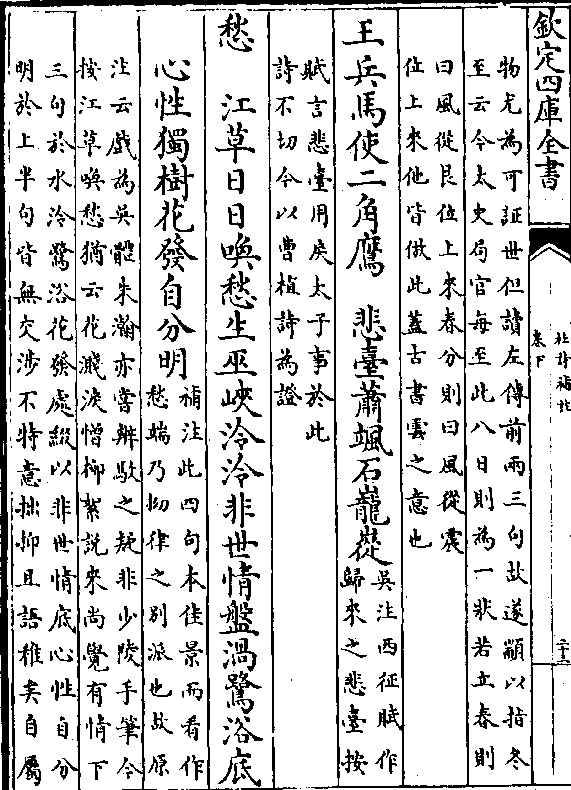 欽定四庫全書
杜詩補註
卷下
二十三
物尤為可証世但讀左傳前兩三句故遂顓以指冬
至云今太史局官每至此八日則為一狀若立春則
曰風從艮位上來春分則曰風從震
位上來他皆倣此蓋古書雲之意也
王兵馬使二角鷹 悲臺蕭颯石巃嵷
吳注西征賦作
歸來之悲臺按
賦言悲臺用戾太子事於此
詩不切今以曹植詩為證
愁 江草日日喚愁生巫峽泠泠非世情盤渦鷺浴底
心性獨樹花發自分明
補注此四句本佳景而看作
愁端乃拗律之別派也故原
注云戲為吳體朱瀚亦嘗辨駁之疑非少陵手筆今
按江草喚愁猶云花濺淚憎柳絮說來尚覺有情下
三句於水泠鷺浴花發處綴以非世情底心性自分
明於上半句皆無交涉不特意拙抑且語稚矣自屬